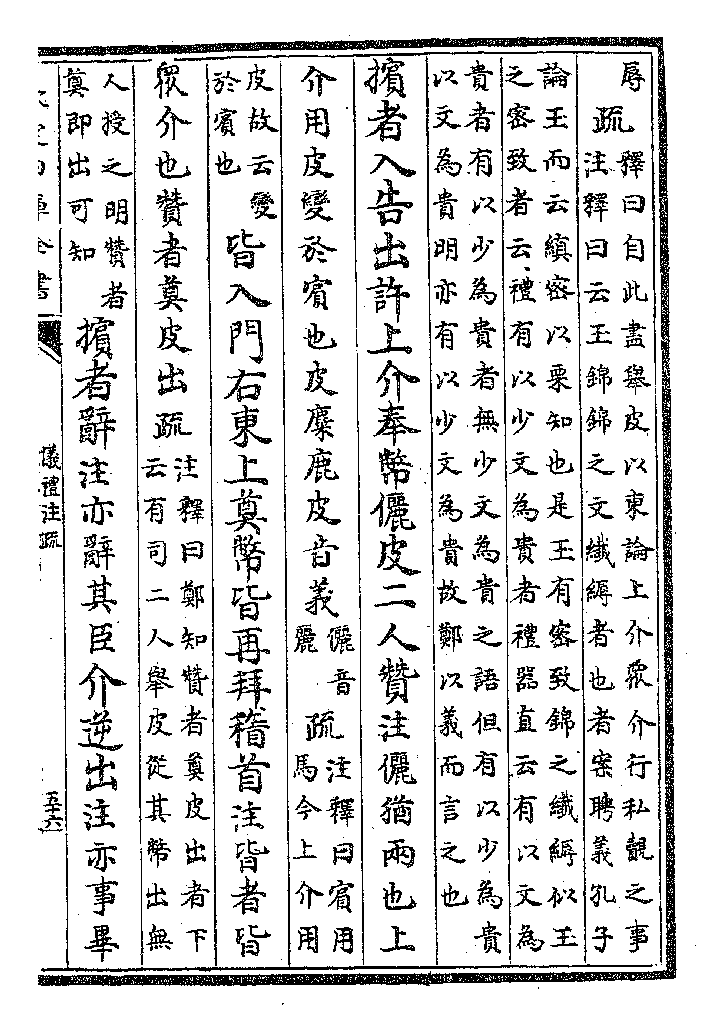 辱
疏
釋曰自此盡舉皮以東論上介眾介行私覿之事
注釋曰云玉錦錦之文纖縟者也者案聘義孔子
論玉而云縝密以栗知也是玉有密致錦之纖縟似玉
之密致者云禮有以少文為貴者禮器直云有以文為
貴者有以少為貴者無少文為貴之語但有以少為貴
以文為貴明亦有以少文為貴故鄭以義而言之也
擯者入告出許上介奉幣儷皮二人贊注儷猶兩也上
介用皮變於賓也皮麋鹿皮音義
儷音
麗
疏
注釋曰賓用
馬今上介用
皮故云變
於賓也
皆入門右東上奠幣皆再拜稽首注皆者皆
眾介也贊者奠皮出疏
注釋曰鄭知贊者奠皮出者下
云有司二人舉皮從其幣出無
人授之明贊者
奠即出可知
擯者辭注亦辭其臣介逆出注亦事畢
全書
儀禮注疏
五十六